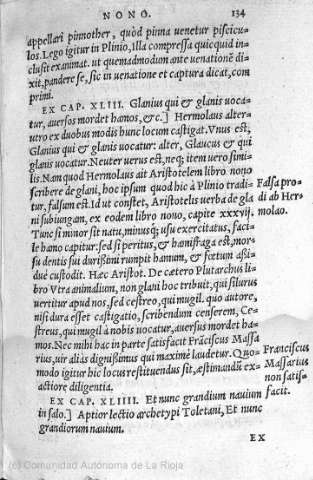 NONO. 134
appellari pinnother, quòd pinna uenetur piscicu-
los. Lego igitur in Plinio, illa compressa quicquid in-
clusit exanimat. ut quemadmodum ante uenationē di-
xit, pandere se, sic in uenatione et captura dicat, com
primi.
EX CAP. XLIII. Glanius qui & glanis uoca-
tur, auersos mordet hamos, &c.] Hermolaus alter-
utro ex duobus modis hunc locum castigat. Vnus est,
Glanius qui & glanis uocatur: alter, Glaucus & qui
glanis uocatur. Neuter uerus est, neq; item uero simi-
lis. Nam quod Hermolaus ait Aristotelem libro nono
scribere de glani, hoc ipsum quod hic à Plinio tradi-
tur, falsum est. Id ut constet, Aristotelis uerba de gla
ni subiungam, ex eodem libro nono, capite xxxvij.
Tunc si minor sit natu, minusq; usu exercitatus, faci-
le hamo capitur: sed si peritus, & hamifraga est, mor-
su dentis sui durissimi rumpit hamum, & fœtum assi-
duè custodit. Hæc Aristot. De cætero Plutarchus li-
bro Vtra animalium, non glani hoc tribuit, qui silurus
uertitur apud nos, sed cestreo, qui mugil. quo autore,
nisi dura esset castigatio, scribendum censerem, Ce-
streus, qui mugil à nobis uocatur, auersus mordet ha-
mos. Nec mihi hac in parte satisfacit Frāciscus Massa
rius, uir alias dignissimus qui maximè laudetur. Quo-
modo igitur hic locus restituendus sit, æstimandū ex-
actiore diligentia.
EX CAP. XLIIII. Et nunc grandium nauium
in salo.] Aptior lectio archetypi Toletani, Et nunc
grandiorum nauium.
EX
Falsa pro-
di ab Her-
molao.
Franciscus
Massarius
non satis-
facit.
(c) Comunidad Autónoma de La Rioja